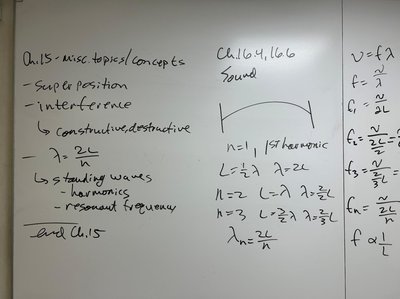 Ch.15 - misc. topics/concepts
- superposition
- interference
↳ constructive, destructive
- λ = 2L/n
↳ standing waves
- harmonics
- resonant frequency
end Ch.15
Ch.16.4, 16.6
Sound
n=1, 1st harmonic
L = 1/2 λ λ = 2L
n=2 L = λ λ = 2/2 L
n=3 L = 3/2 λ λ = 2/3 L
λn = 2L/n
v = fλ
f = v/λ
f1 = v/2L
f2 = v/(2L/2) =
f3 = v/(2/3 L) =
fn = v/(2L/n)
f ∝ 1/L